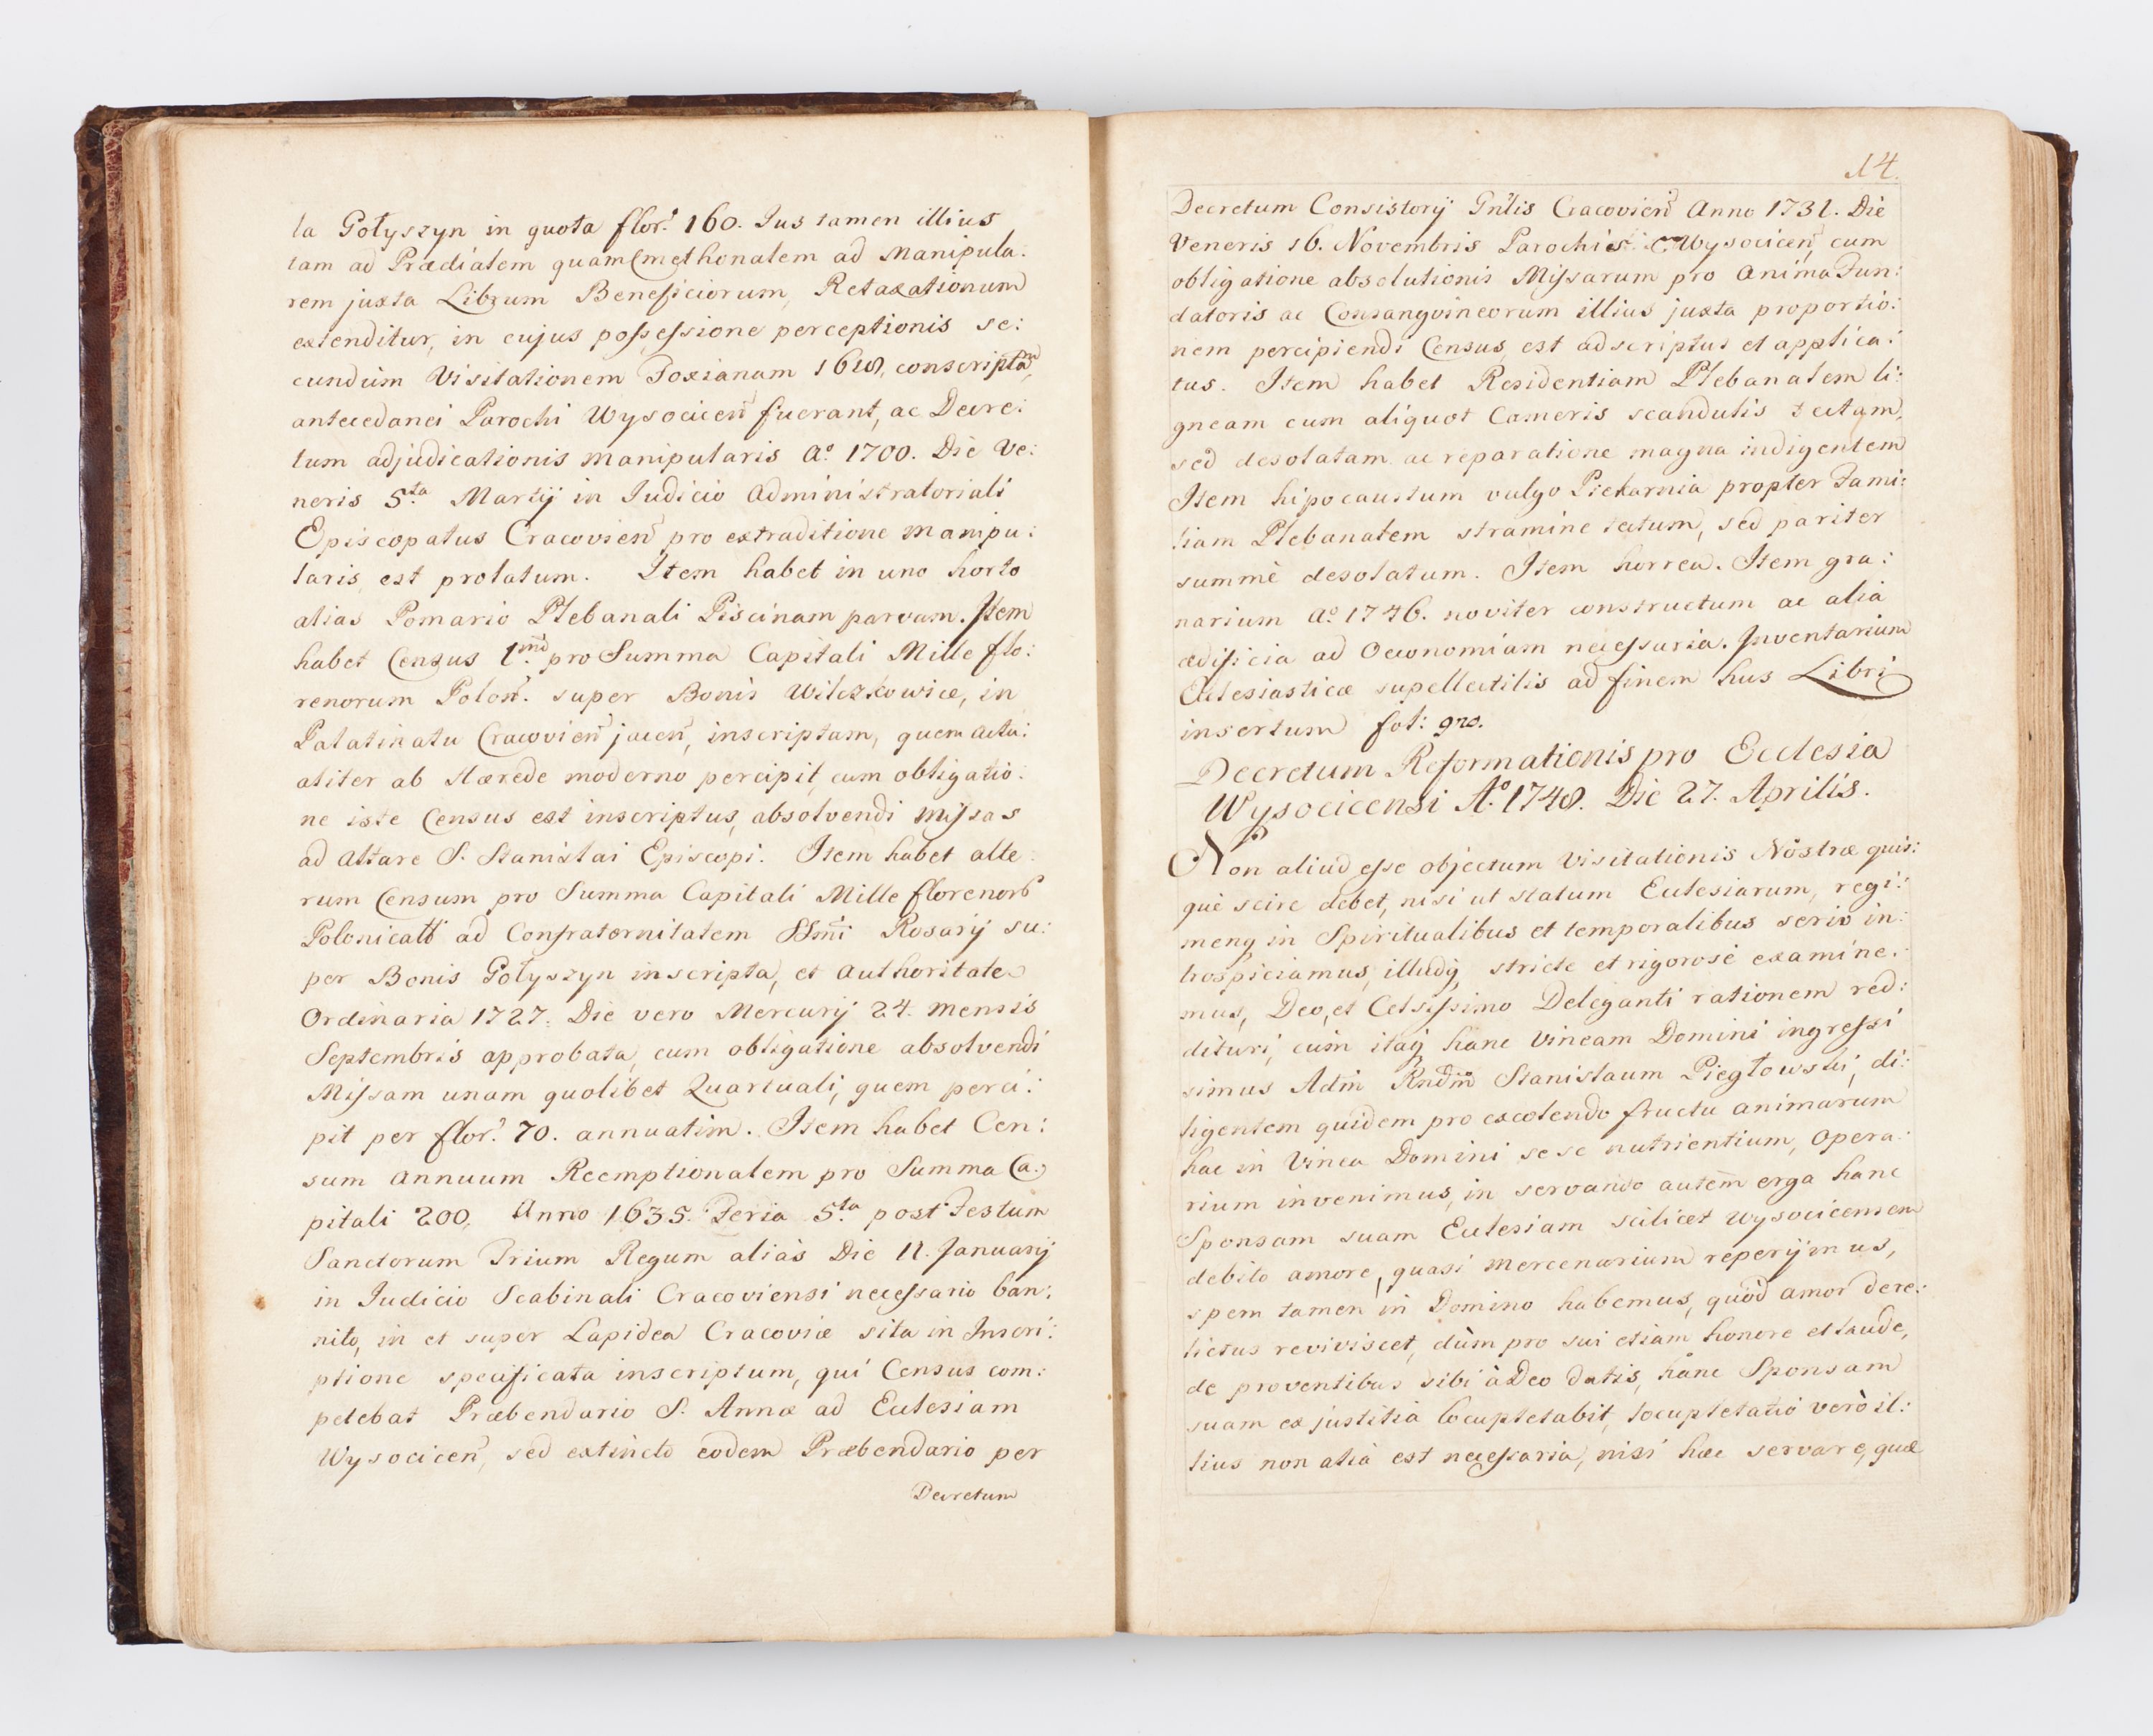 la Gołyszyn in quota flor. 160. Jus tamen illius
tam ad Prædialem quam Cmethonalem ad Manipula:
rem juxta Librum Beneficiorum, Retaxationum
extenditur, in cujus possessione perceptionis se:
cundùm Visitationem Foxianam 1618, conscriptam,
antecedanei Parochi Wysocicen̄ fuerant, ac Decre:
tum adjudicationis manipularis Aº 1700. Die Ve:
neris 5ta Martij in Judicio Administratoriali
Episcopatus Cracovien̄ pro extraditione Manipu:
laris, est prolatum. Item habet in uno horto
alias Pomario Plebanali Piscinam parvam. Item
habet Census 1mũ pro Summa Capitali Mille flo:
renorum Polon. super Bonis Wilczkowice, in
Palatinatu Cracovien̄ jacen̄, inscriptam, quem actu:
aliter ab Hærede moderno percipit, cum obligatio:
ne iste Census est inscriptus, absolvendi Missas
ad Altare S. Stanislai Episcopi. Item habet alte:
rum Censum pro Summa Capitali Mille floreno
Polonicali ad Confraternitatem SSmi Rosarij su:
per Bonis Gołyszyn inscripta, et Authoritate
Ordinaria 1727. Die vero Mercurij 24. Mensis
Septembris approbata, cum obligatione absolvendi
Missam unam quolibet Quartuali, quem perci:
pit per flor. 70. annuatim. Item habet Cen:
sum annuum Reemptionalem pro Summa Ca:
pitali 200, Anno 1635. Feria 5ta post Festum
Sanctorum Trium Regum aliàs Die 11. Januarij
in Judicio Scabinali Cracoviensi necessario ban:
nito, in et super Lapidea Cracoviæ sita in Inscri:
ptione specificata inscriptum, qui Census com:
petebat Præbendario S. Annæ ad Ecclesiam
Wysocicen̄, sed extincto eodem Præbendario per
Decretum
14.
Decretum Consistorij Gn̄lis Cracovien̄ Anno 1731. Die
Veneris 16. Novembris Parochis Wysocicen̄, cum
obligatione absolutionis Missarum pro Anima Fun:
datoris ac Consangvineorum illius juxta proportio:
nem percipiendi Census, est adscriptus et applica:
tus. Item habet Residentiam Plebanalem li:
gneam cum aliquot Cameris scandulis tectam,
sed desolatam ac reparatione magna indigentem
Item hipocaustum vulgo Piekarnia propter Fami:
liam Plebanalem stramine tectum, sed pariter
summè desolatum. Item horrea. Item gra:
narium Aº 1746. noviter constructum ac alia
ædificia ad Oeconomiam necessaria. Inventarium
Ecclesiasticæ supellectilis ad finem hus Libri
insertum fol: gro.
Decretum Reformationis pro Ecclesia
Wysocicensi Aº 1748. Die 27. Aprilis.
Non aliud esse objectum Visitationis Nostræ quis:
què scire debet, nisi ut statum Ecclesiarum, regi:
menq in Spiritualibus et temporalibus serio in:
trospiciamus, illudq, stricte et rigorosè examine:
mus, Deo, et Celsissimo Deleganti rationem red:
dituri, cùm itaq hanc Vineam Domini ingressi
simus Adm Rndm̄ Stanislaum Piegłowski, di:
ligentem quidem pro excolendo fructu animarum
hac in Vinea Domini sese nutrientium, Opera:
rium invenimus, in servando autem erga hanc
Sponsam suam Ecclesiam scilicet Wysocicensem
debito amore, quasi Mercenarium reperijmus,
spem tamen in Domino habemus, quòd amor dere:
lictus reviviscet, dùm pro sui etiam honore et laude,
de proventibus sibi à Deo datis, hanc Sponsam
suam ex justitia locupletabit, locupletatio verò il:
lius non alia est necessaria, nisi hæc servare, quæ